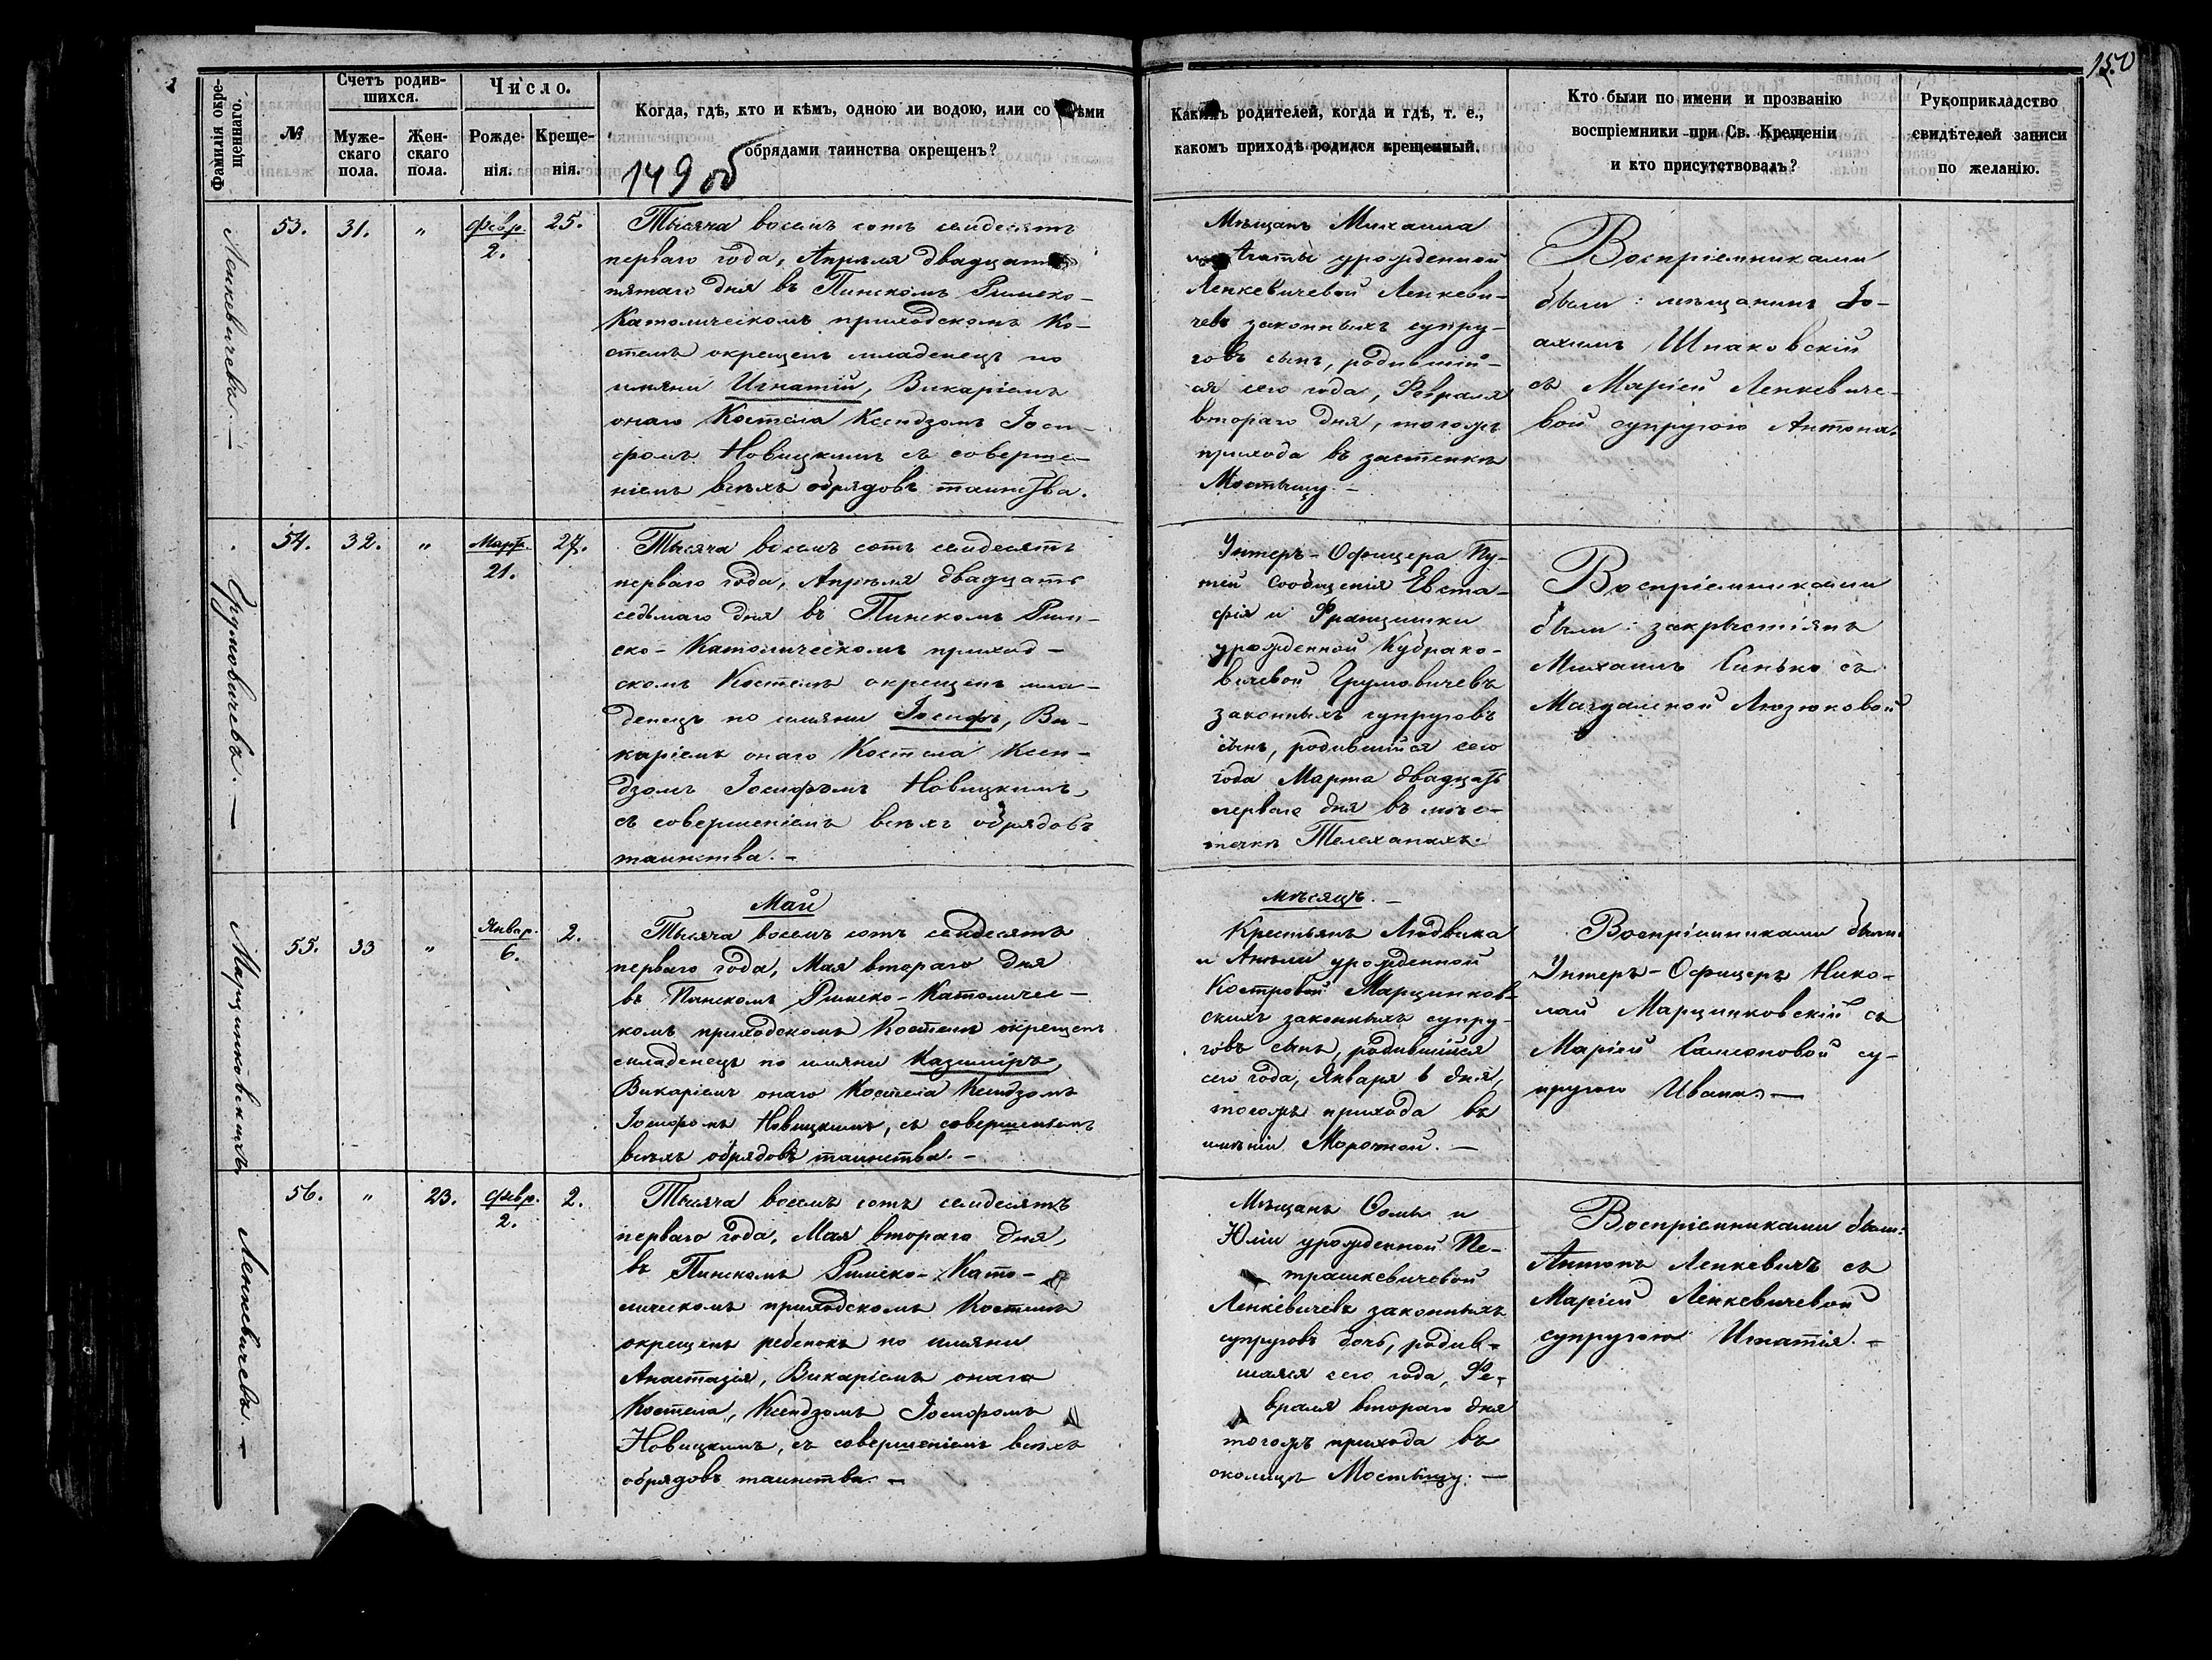 150
Фамилія окре-
щеннаго.
№
Счетъ родив-
шихся.
Муже-
скаго
пола.
Жен-
скаго
пола.
Число.
Рожде-
нія.
Креще-
нія.
Когда, гдѣ, кто и кѣмъ, одною ли водою, или со всѣми
обрядами таинства окрещенъ?
149 об
Какихъ родителей, когда и гдѣ, т. е.,
какомъ приходѣ родился крещенный.
Кто были по имени и прозванію
воспріемники при Св. Крещеніи
и кто присутствовалъ?
Рукоприкладство
свидѣтелей записи
по желанію.
Ленкевичевъ.—
53.
31.
"
Февр.
2.
25.
Тысяча восемь сотъ семдесятъ
перваго года, Апрѣля двадцать
пятаго дня въ Пинскомъ Римско-
Католическомъ приходскомъ Ко-
стелѣ окрещенъ младенецъ по
имяни Игнатій, Викаріемъ
онаго Костела Ксендзомъ Іоси-
фомъ Новицкимъ съ соверше-
ніемъ всѣхъ обрядовъ таинства.
Мѣщанъ Михаила
и Агаты урожденной
Ленкевичевой Ленкеви-
чевъ законныхъ супру-
говъ сынъ, родившій-
ся сего года, Февраля
втораго дня, тогожъ
прихода въ застенкѣ
Мостыцу.—
Воспріемниками
были: мѣщанинъ Іо-
ахимъ Шпаковскій
съ Маріей Ленкевиче-
вой супругою Антона.
Грумовичевъ.—
54.
32.
"
Март.
21.
27.
Тысяча восемь сотъ семдесятъ
перваго года, Апрѣля двадцать
седьмаго дня въ Пинскомъ Рим-
ско-Католическомъ приход-
скомъ Костелѣ окрещенъ мла-
денецъ по имяни Іосифъ, Ви-
каріемъ онаго Костела Ксен-
дзомъ Іосифомъ Новицкимъ,
съ совершеніемъ всѣхъ обрядовъ
таинства.—
Унтеръ-Офицера Пу-
тей Сообщенія Евста-
фія и Францишки
урожденной Кудрако-
вичевой Грумовичевъ
законныхъ супруговъ
сынъ, родившійся сего
года Марта двадцать
перваго дня въ мѣс-
течкѣ Телеханахъ.
Воспріемниками
были: закрыстіянъ
Михаилъ Синько съ
Магдаленой Люзюковой
Марцинковскихъ
55.
33
"
Январ.
6.
2.
Май
Тысяча восемь сотъ семдесятъ
перваго года, Мая втораго дня
въ Пинскомъ Римско-Католичес-
комъ приходскомъ Костелѣ окрещенъ
младенецъ по имяни Казиміръ,
Викаріемъ онаго Костела Ксендзомъ
Іосифомъ Новицкимъ, съ совершеніемъ
всѣхъ обрядовъ таинства.—
мѣсяцъ.—
Крестьянъ Людвика
и Анели урожденной
Костровой Марцинков-
скихъ законныхъ супру-
говъ сынъ, родившійся
сего года, Января 6 дня,
тогожъ прихода въ
имѣніи Морочной.—
Воспріемниками были
Унтеръ-Офицеръ Нико-
лай Марцинковскій съ
Маріей Самсоновой су-
пругою Ивана.—
Ленкевичевъ.—
56.
"
23.
Февр.
2.
2.
Тысяча восемь сотъ семдесятъ
перваго года, Мая втораго дня,
въ Пинскомъ Римско-Като-
лическомъ приходскомъ Костелѣ
окрещенъ ребенокъ по имяни
Анастазія, Викаріемъ онаго
Костела, Ксендзомъ Іосифомъ
Новицкимъ, съ совершеніемъ всѣхъ
обрядовъ таинства.—
Мѣщанъ Ѳомы и
Юліи урожденной Пе-
трашкевичевой
Ленкевичевъ законныхъ
супруговъ дочь, родив-
шаяся сего года, Фе-
враля втораго дня
тогожъ прихода въ
околицѣ Мостыцу.—
Воспріемниками были:
Антонъ Ленкевичъ съ
Маріей Ленкевичевой
супругою Игнатія.—